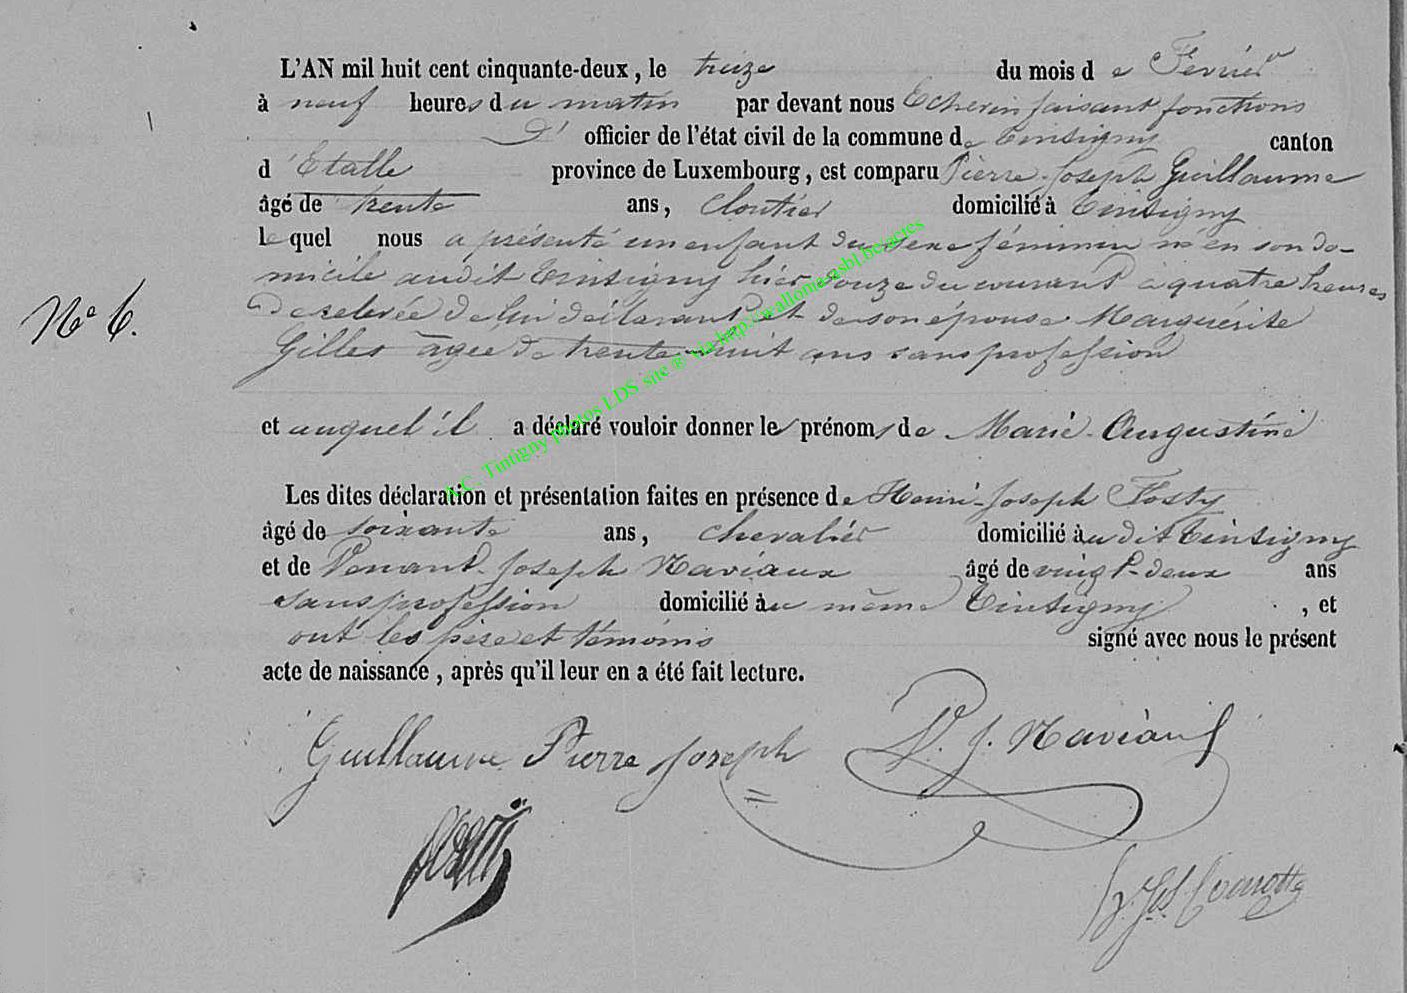 L'AN mil huit cent cinquante-deux, le treize du mois de Février
à neuf heures du matin par devant nous Echevin faisant fonctions
d' officier de l'état civil de la commune de Tintigny canton
d'Etalle province de Luxembourg, est comparu Pierre-Joseph Guillaume
âgé de trente ans, Cloutier domicilié à Tintigny
lequel nous a présenté un enfant du sexe féminin né en son do-
micile audit Tintigny hier douze du courant à quatre heures
de relevée de lui déclarant et de son épouse Marguerite
Gilles âgée de trente-huit ans sans profession
N° 6.
et auquel il a déclaré vouloir donner les prénoms de Marie-Augustine
Les dites déclaration et présentation faites en présence de Henri-Joseph Fosty
âgé de soixante ans, chevalier domicilié audit Tintigny
et de Venant-Joseph Naviaux âgé de vingt-deux ans
sans profession domicilié au même Tintigny, et
ont les père et témoins signé avec nous le présent
acte de naissance, après qu'il leur en a été fait lecture.
Guillaume Pierre Joseph V. J. Naviaux
A.C. Tintigny photos LDS site ® via http://wallonia-asbl.be/actes